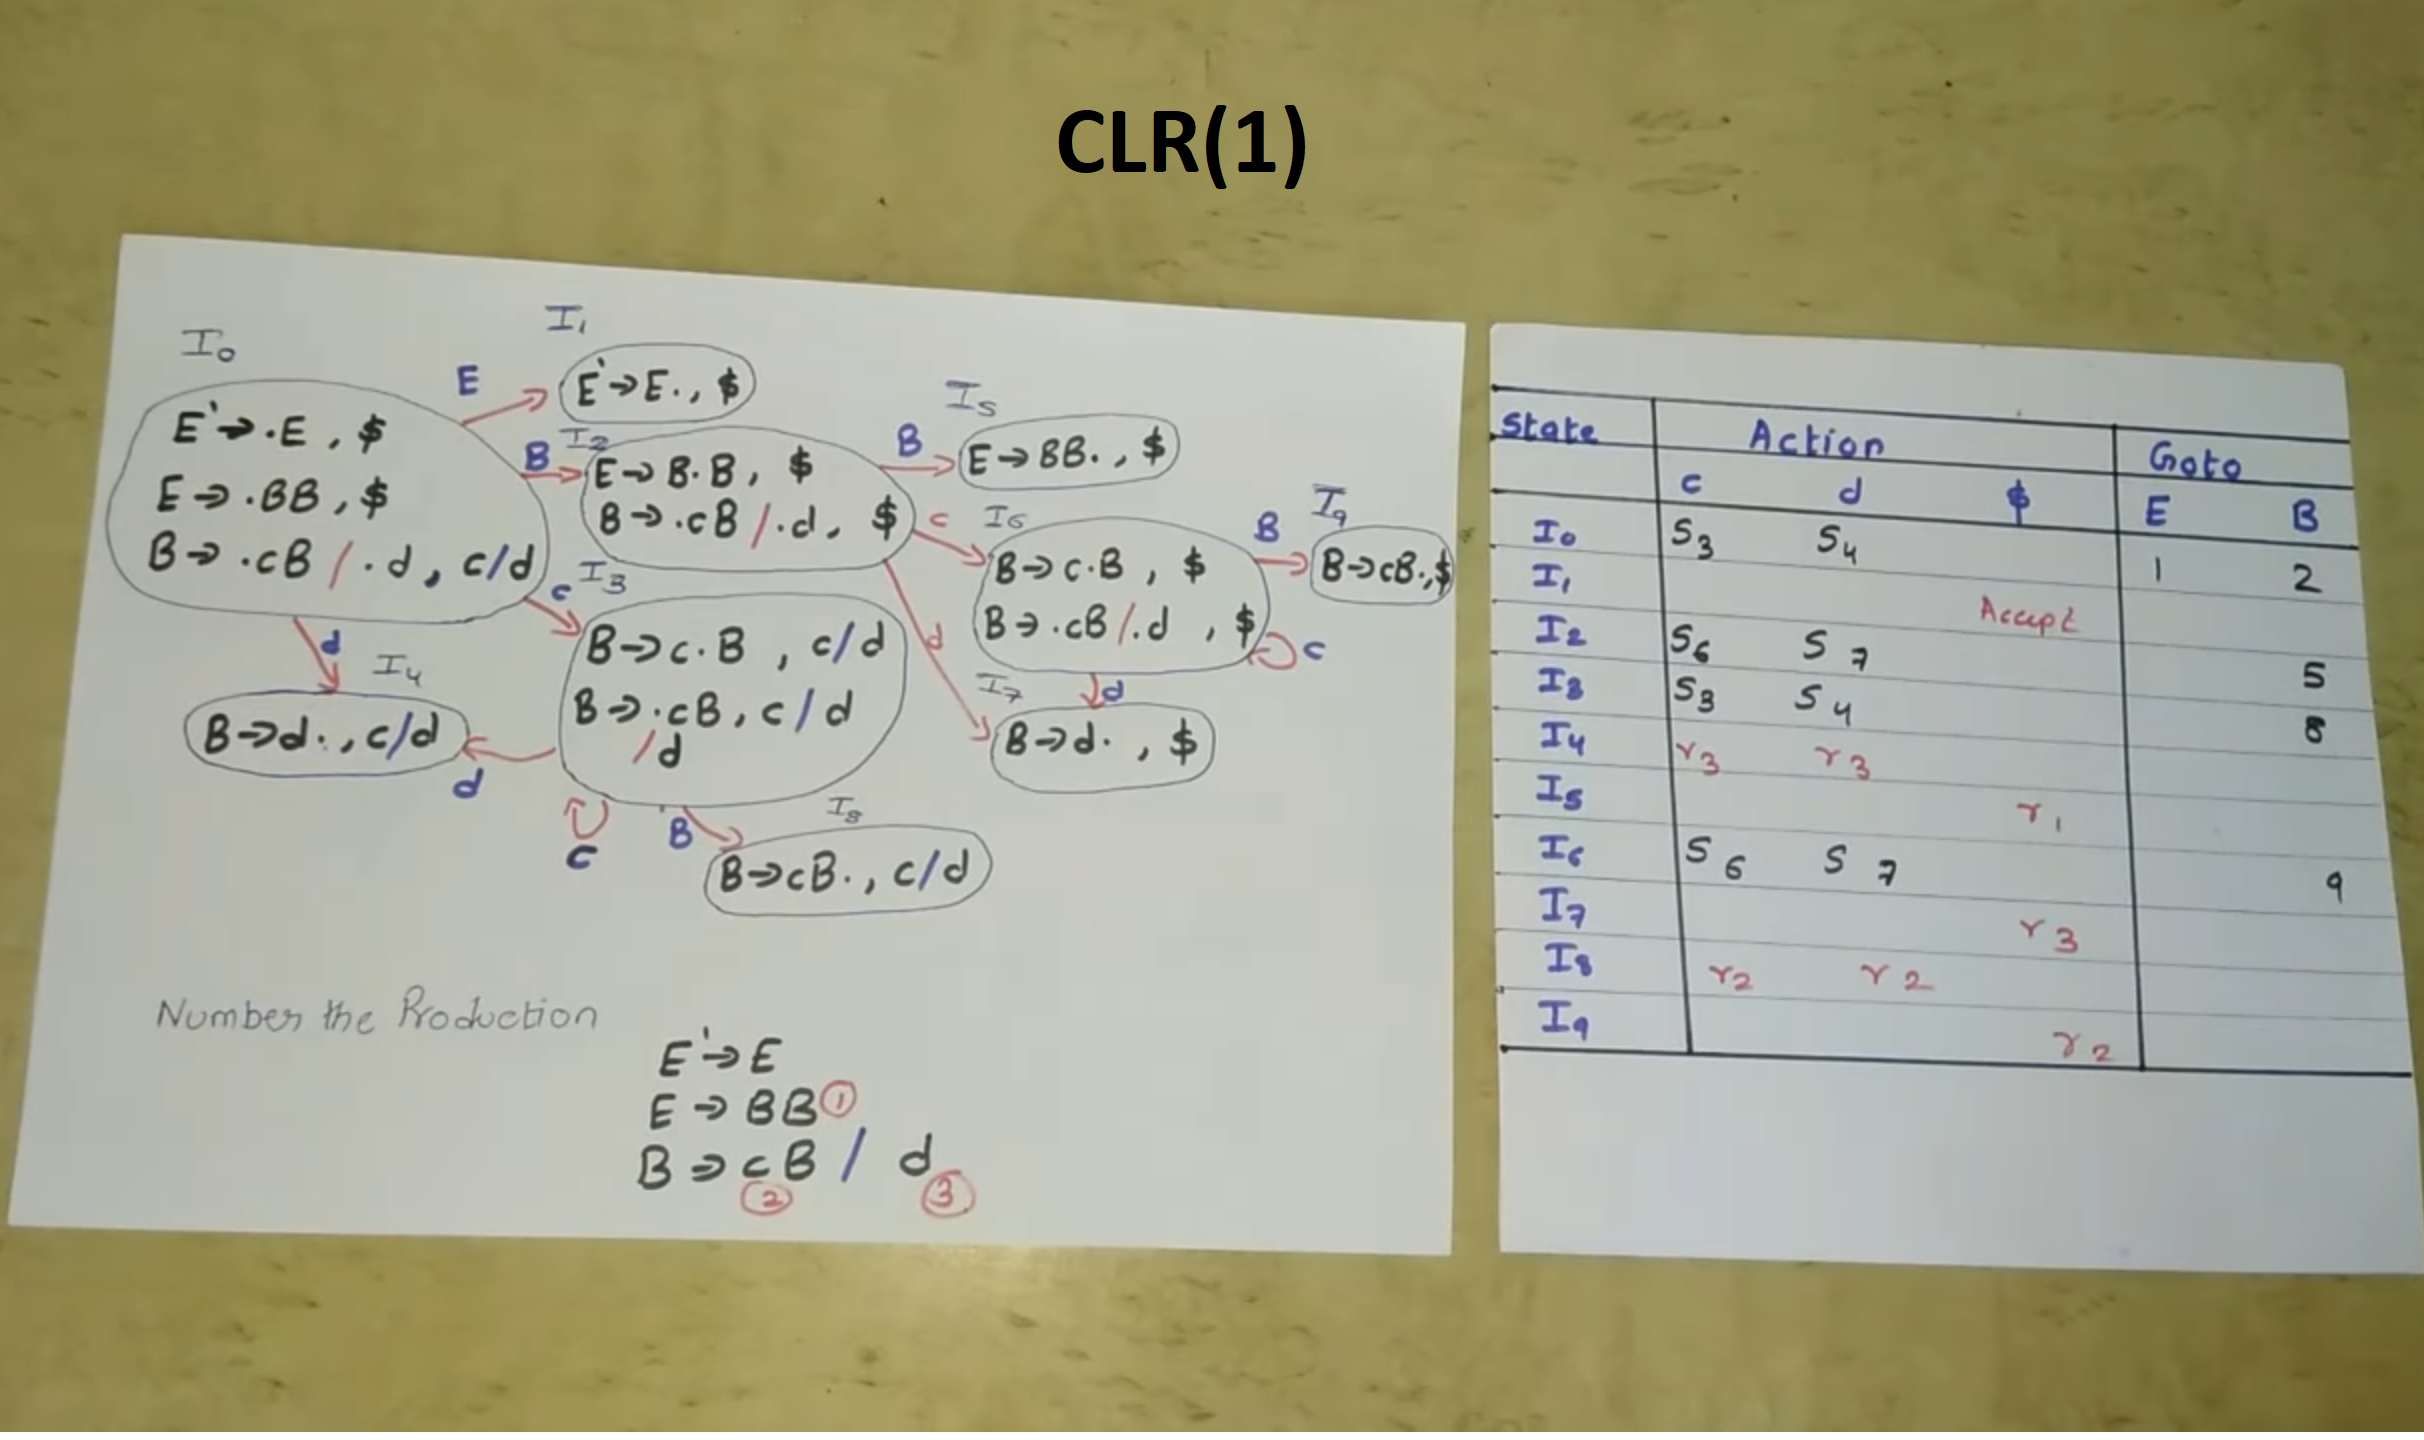 CLR(1)
I0
E' → .E , $
E → .BB , $
B → .cB / .d , c/d
E
I1
E' → E. , $
B
I2
E → B.B , $
B → .cB / .d , $
B
I5
E → BB. , $
c
I6
B → c.B , $
B → .cB / .d , $
c
B
I9
B → cB. , $
d
d
I7
B → d. , $
c
I3
B → c.B , c/d
B → .cB , c/d
/d
d
I4
B → d. , c/d
d
c
B
I8
B → cB. , c/d
Number the Production
E' → E
E → BB ①
B → cB / d
② ③
State Action Goto
c d $ E B
I0 S3 S4 1 2
I1 Accept
I2 S6 S7 5
I3 S3 S4 8
I4 r3 r3
I5 r1
I6 S6 S7 9
I7 r3
I8 r2 r2
I9 r2